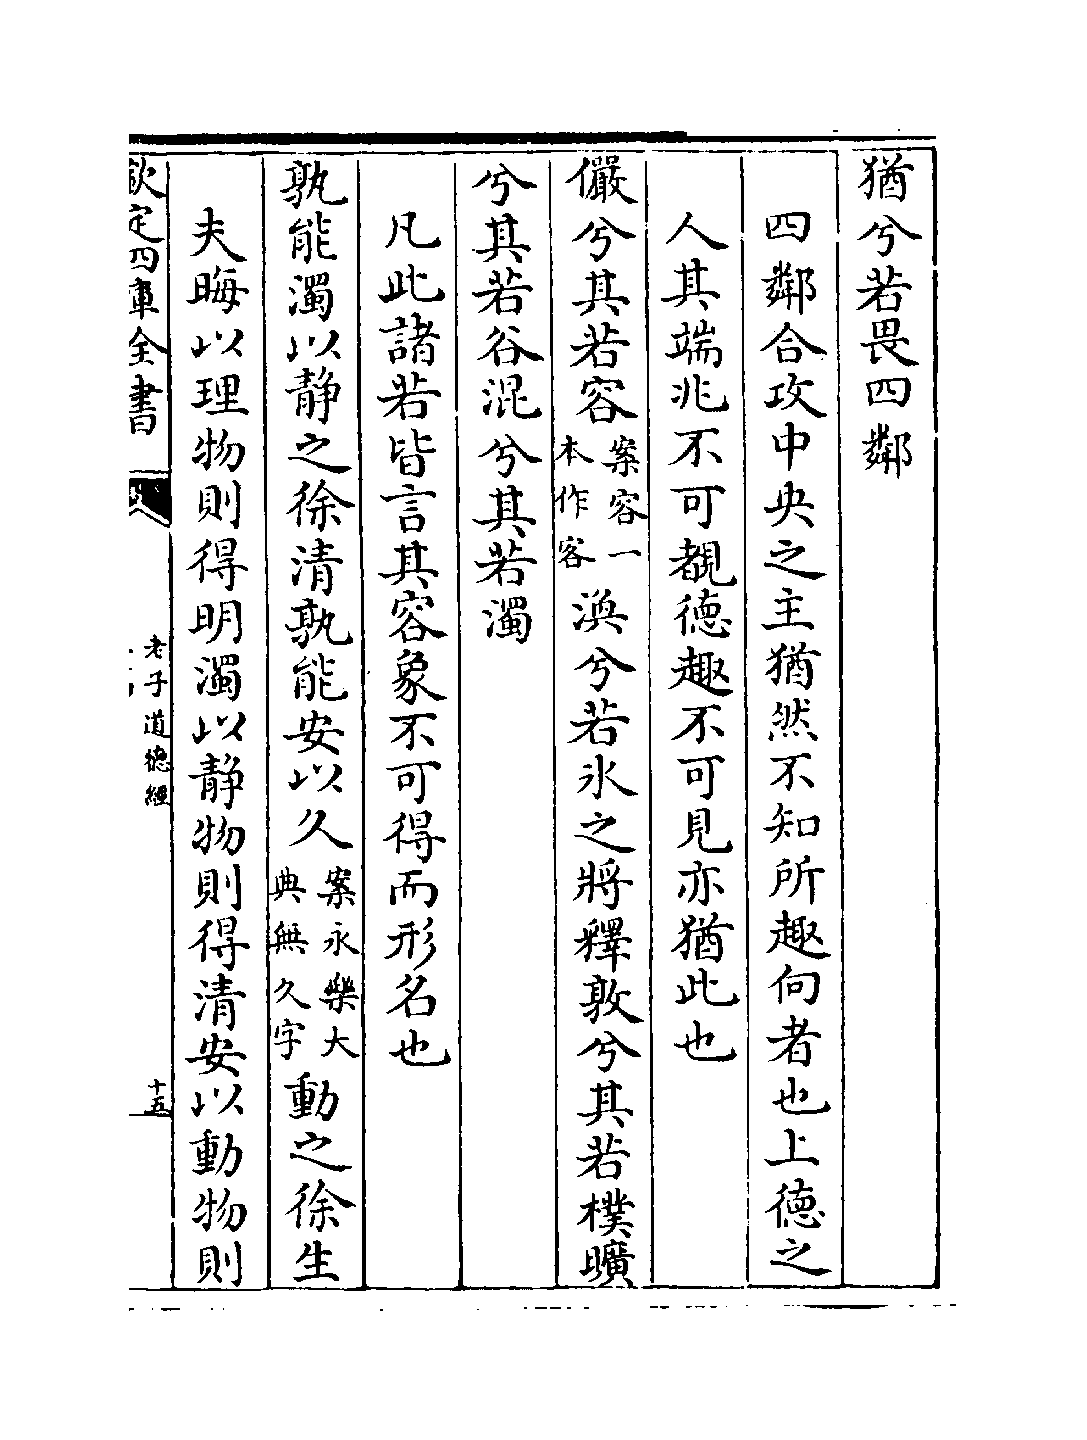 猶兮若畏四鄰
四鄰合攻中央之主猶然不知所趣向者也上德之
人其端兆不可覩德趣不可見亦猶此也
儼兮其若容案容一本作客渙兮若氷之將釋敦兮其若樸曠
兮其若谷混兮其若濁
凡此諸若皆言其容象不可得而形名也
孰能濁以静之徐清孰能安以久案永樂大典無久字動之徐生
夫晦以理物則得明濁以静物則得清安以動物則
欽定四庫全書
老子道德經
十五